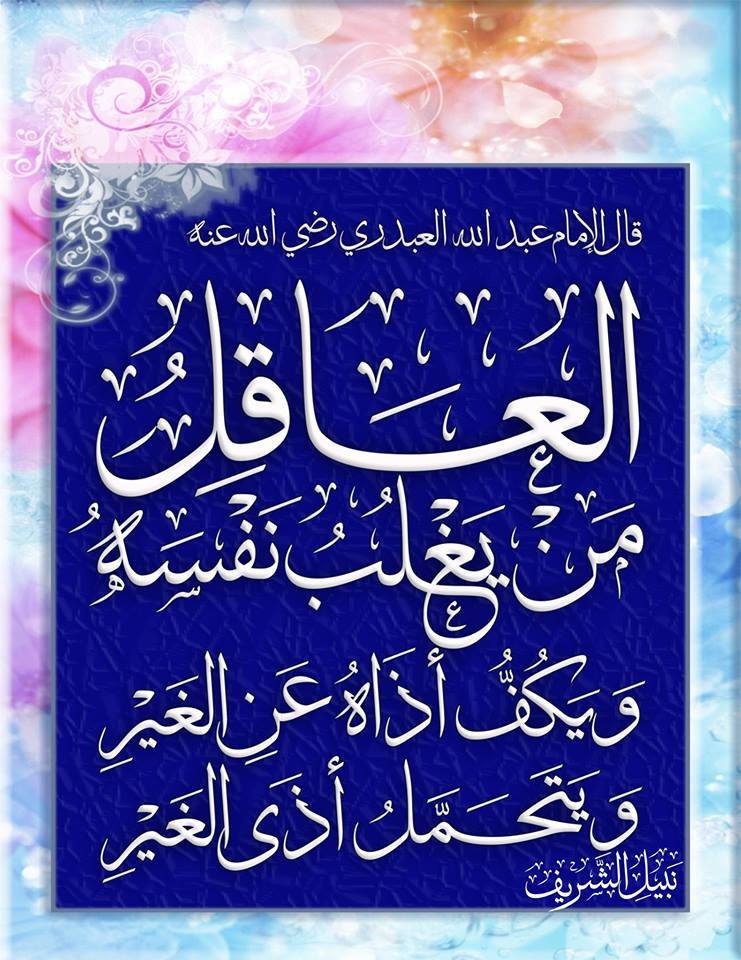 قال الإمام عبد الله العبدري رضي الله عنه
العَاقِلُ
مَنْ يَغْلبُ نَفْسَهُ
وَيَكُفُّ أذَاهُ عَنِ الغَيْرِ
وَيَتَحَمَّلُ أذَى الغَيْرِ
نبيل الشَّريف